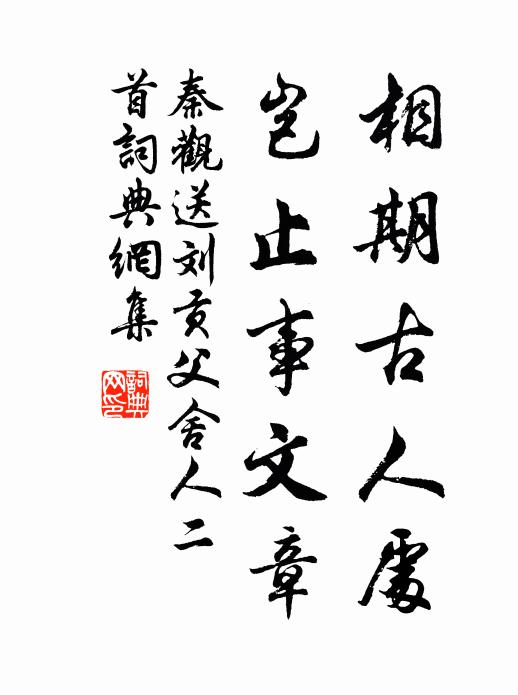 相期古人處
豈止事文章
秦觀送刘貢父舍人二
首詞典網集
詞典
网印